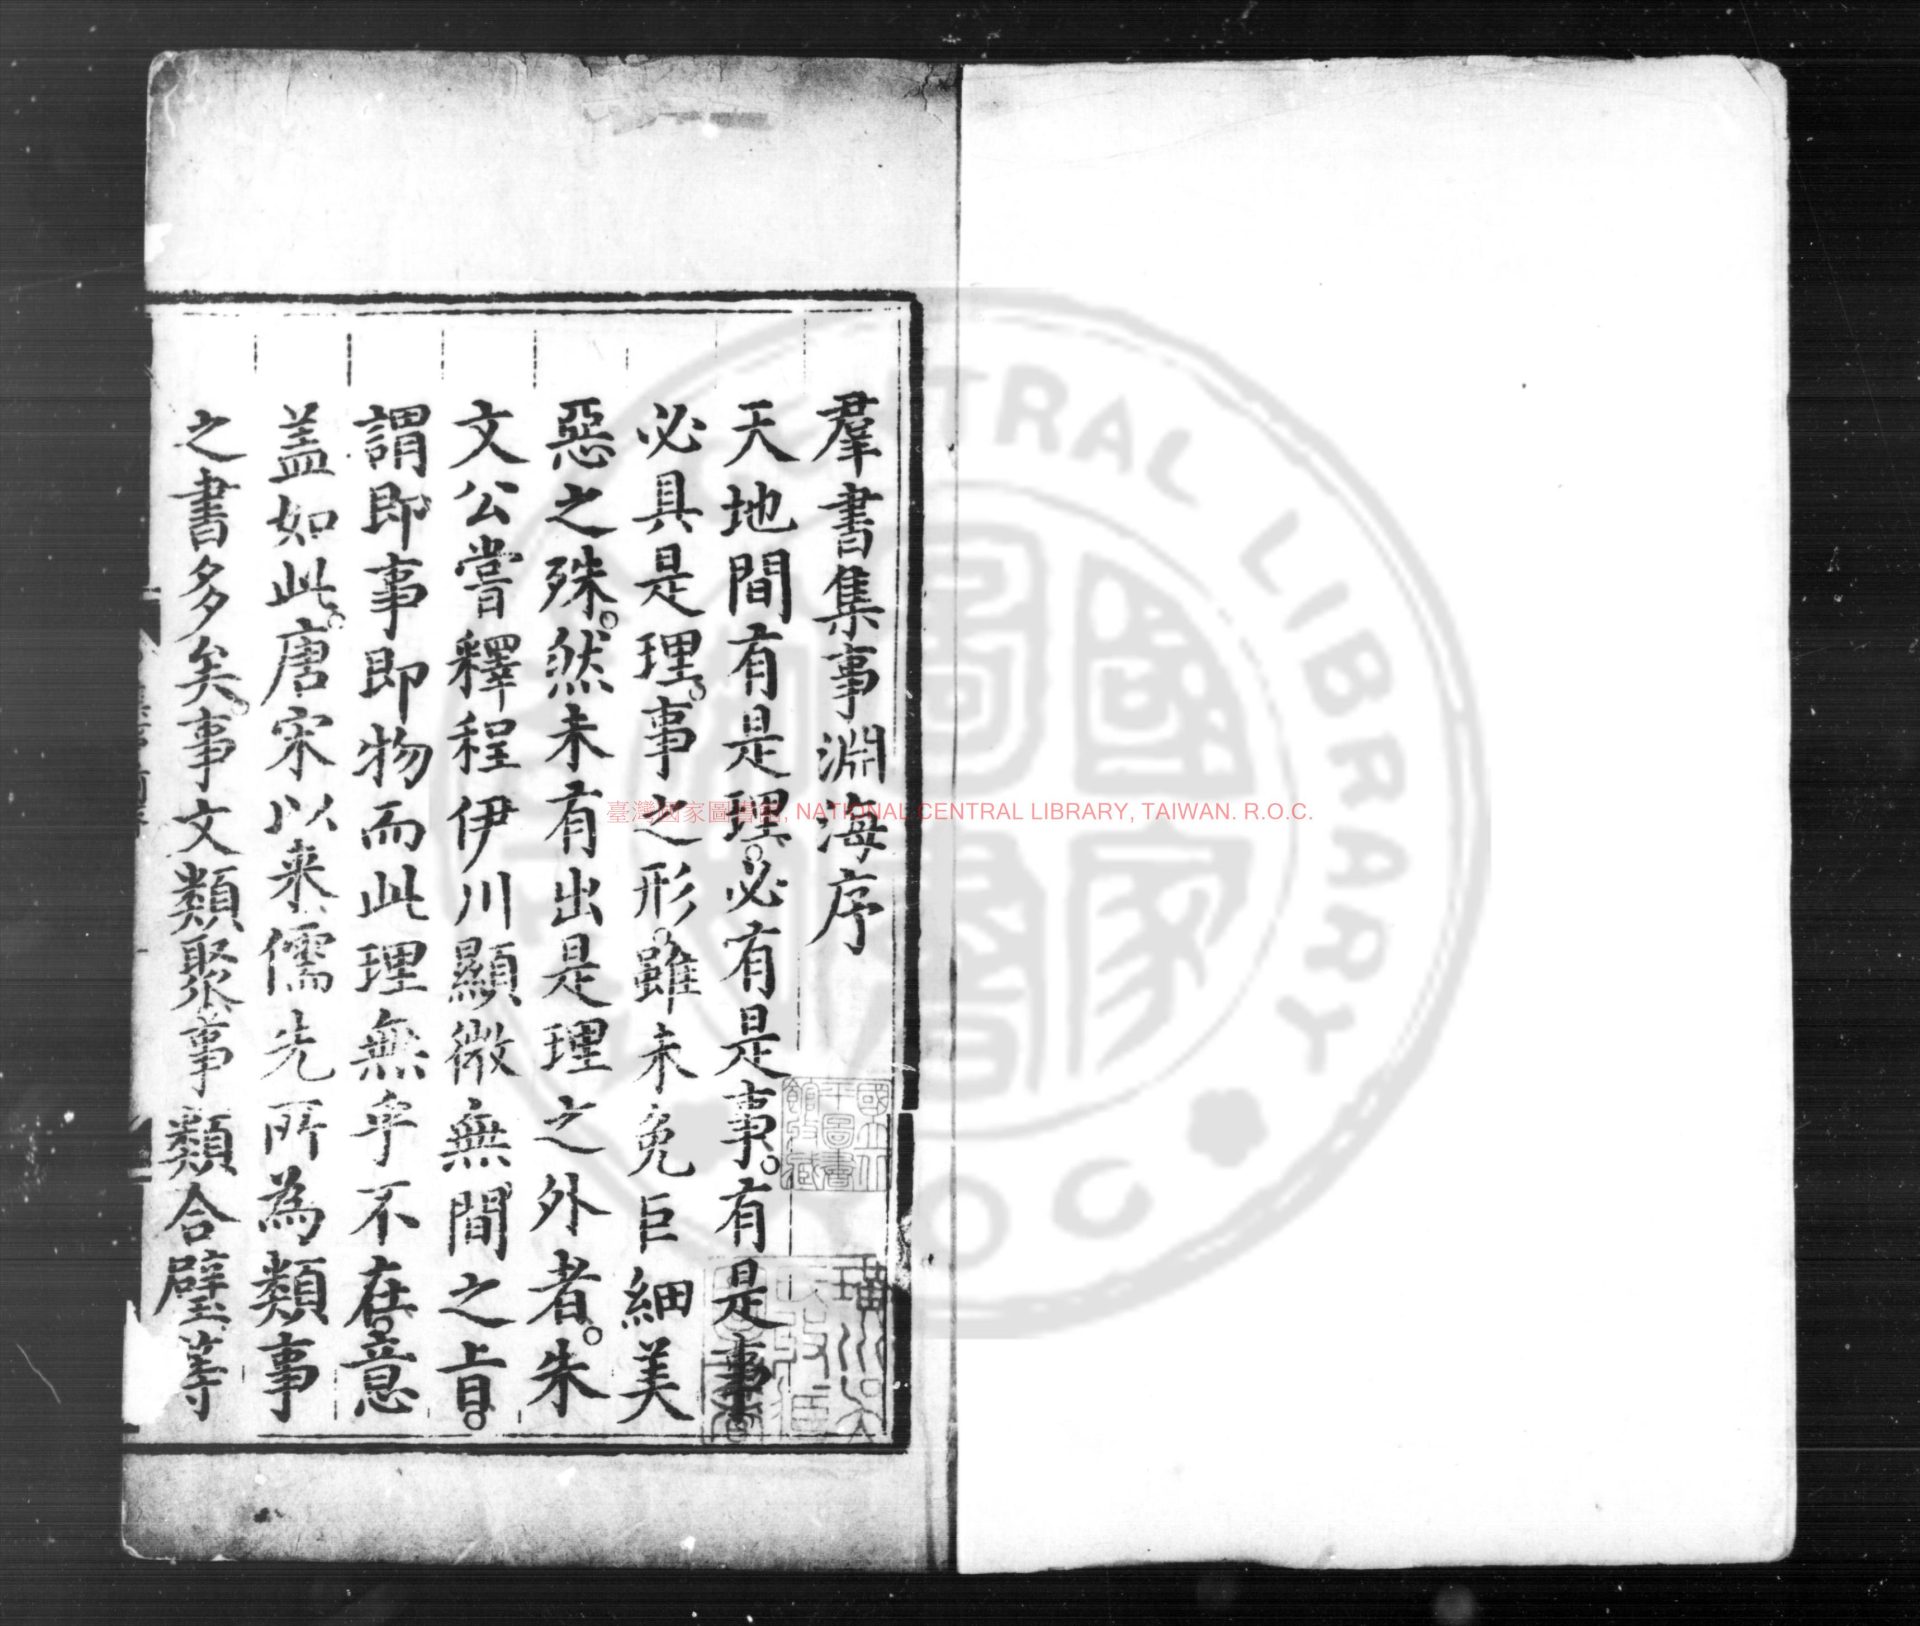 羣書集事淵海序
天地間有是理。必有是事。有是事
必具是理。事之形。雖未免巨細美
惡之殊。然未有出是理之外者。朱
文公嘗釋程伊川顯微無間之㫖。
謂即事即物而此理無乎不在。意
盖如此。唐宋以来儒先所為類事
之書多矣。事文類聚事類合璧等
國立北
平圖書
館收藏
臺灣國家圖書館, NATIONAL CENTRAL LIBRARY, TAIWAN. R.O.C.
CENTRAL LIBRARY
國家圖書館